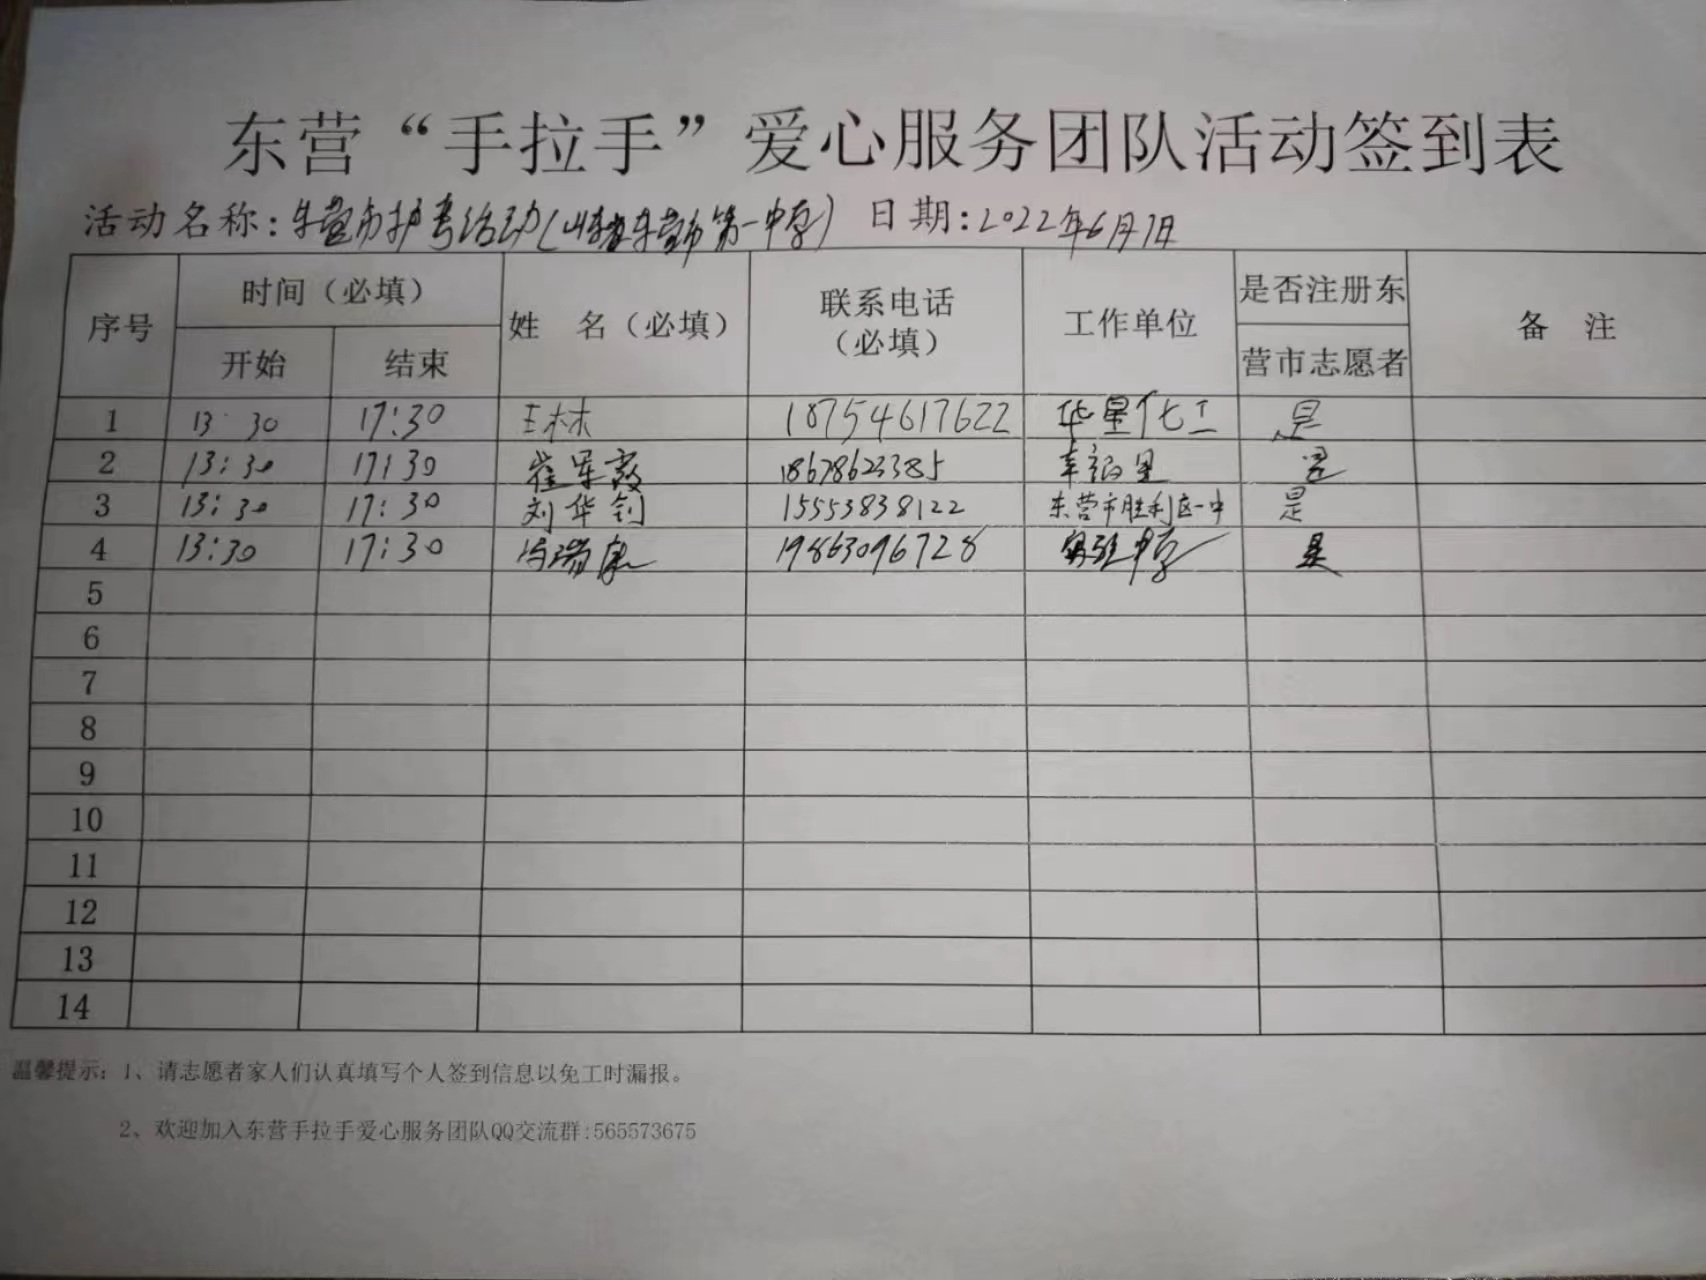 东营“手拉手”爱心服务团队活动签到表
活动名称：东营市护考活动(山东省东营市第一中学) 日期：2022年6月7日
序号 时间（必填） 姓 名（必填） 联系电话（必填） 工作单位 是否注册东营市志愿者 备 注
开始 结束
1 13:30 17:30 王林 18754617622 华星化工 是
2 13:30 17:30 崔军霞 18678623385 幸福里 是
3 13:30 17:30 刘华钊 15553838122 东营市胜利区一中 是
4 13:30 17:30 冯瑞康 19863096728 实验中学 是
5
6
7
8
9
10
11
12
13
14
温馨提示：1、请志愿者家人们认真填写个人签到信息以免工时漏报。
2、欢迎加入东营手拉手爱心服务团队QQ交流群:565573675